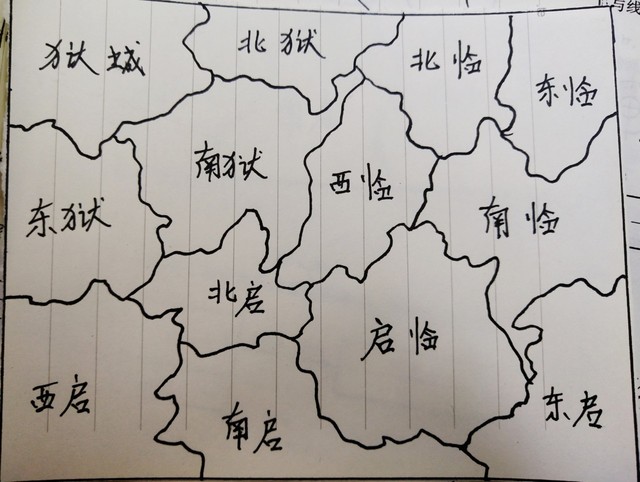 北狱
狱城
北临
东临
南狱
西临
东狱
南临
北启
启临
西启
南启
东启